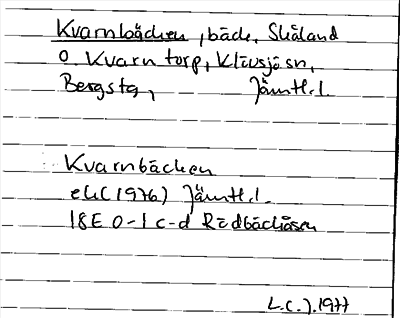 Kvarnbäcken, bäck, Skåland
o. Kvarntorp, Klövsjö sn,
Bergs tg, Jämtl. l.
Kvarnbäcken
ek (1976) Jämtl. l.
18E 0-1 c-d Rödbäcksåsen
L.C.J. 1977